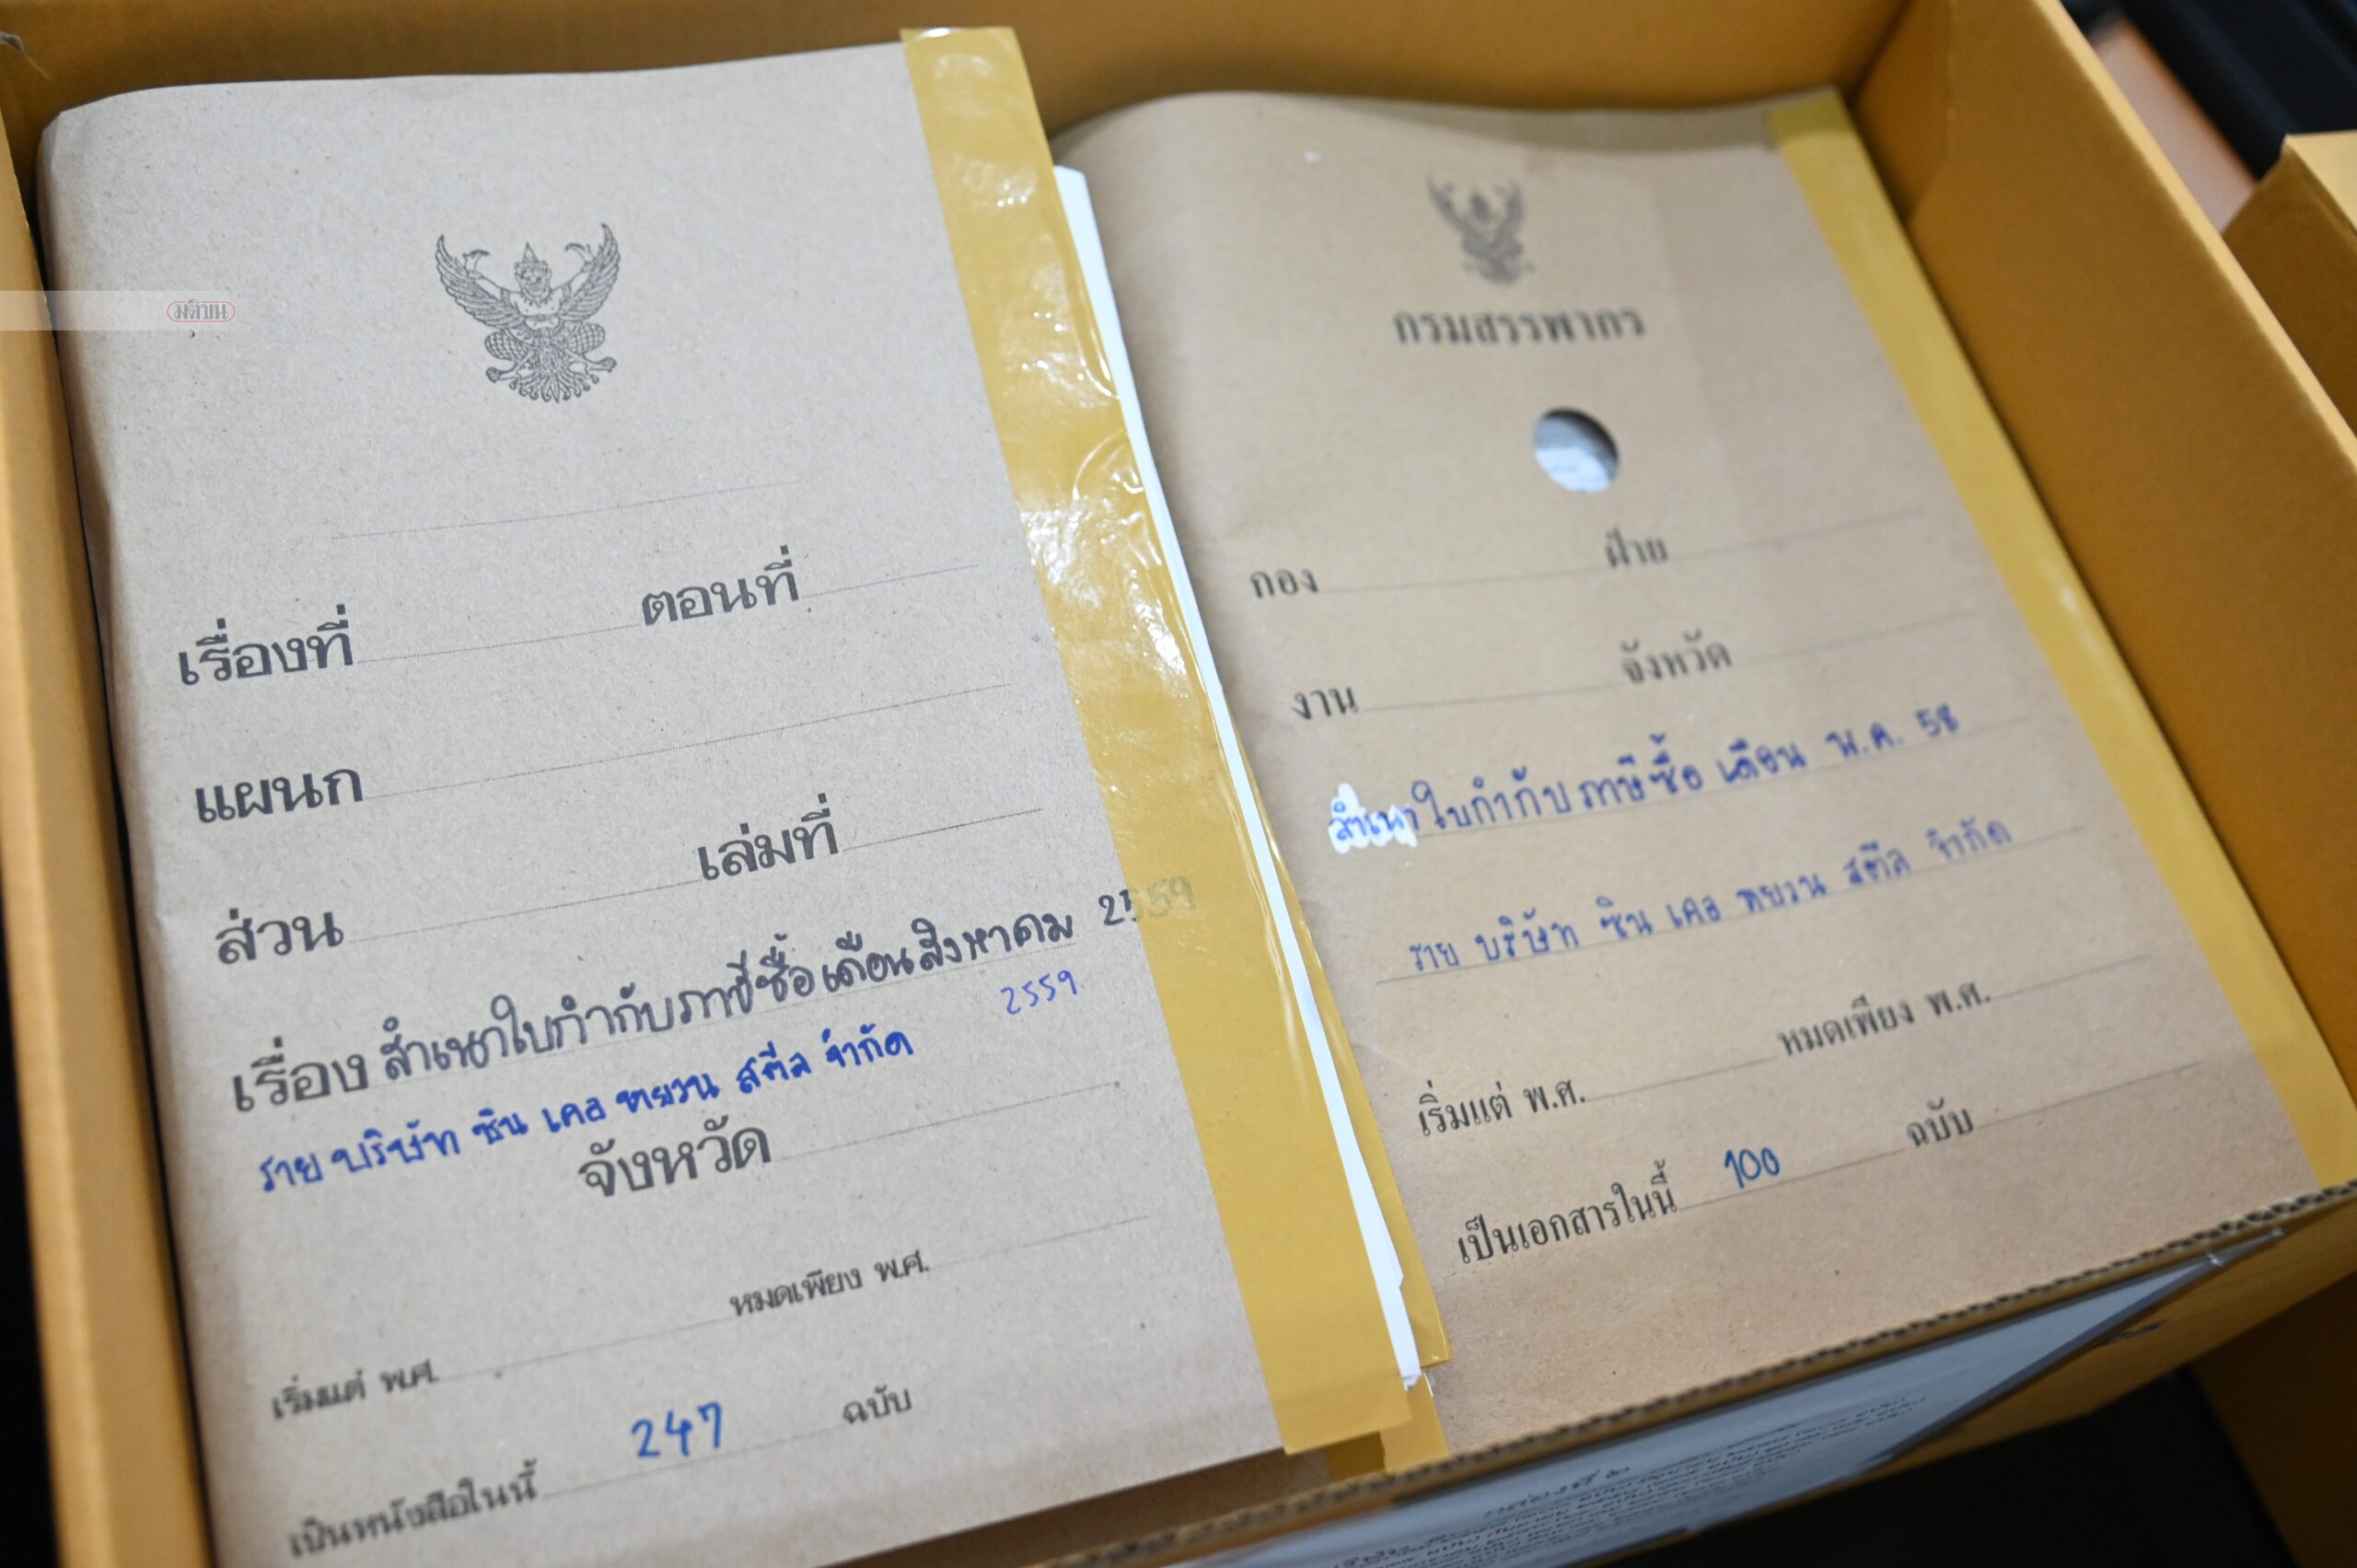 มติชน
เรื่องที่ ตอนที่
แผนก
ส่วน เล่มที่
เรื่อง สำเนาใบกำกับภาษีซื้อเดือนสิงหาคม 2559
2559
ราย บริษัท ซิน เคอ หยวน สตีล จำกัด
จังหวัด
เริ่มแต่ พ.ศ. หมดเพียง พ.ศ.
เป็นหนังสือในนี้ 247 ฉบับ
กรมสรรพากร
กอง ฝ่าย
งาน จังหวัด
สำเนาใบกำกับภาษีซื้อ เดือน พ.ค. 58
ราย บริษัท ซิน เคอ หยวน สตีล จำกัด
เริ่มแต่ พ.ศ. หมดเพียง พ.ศ.
เป็นเอกสารในนี้ 100 ฉบับ
กล่องที่ ๒